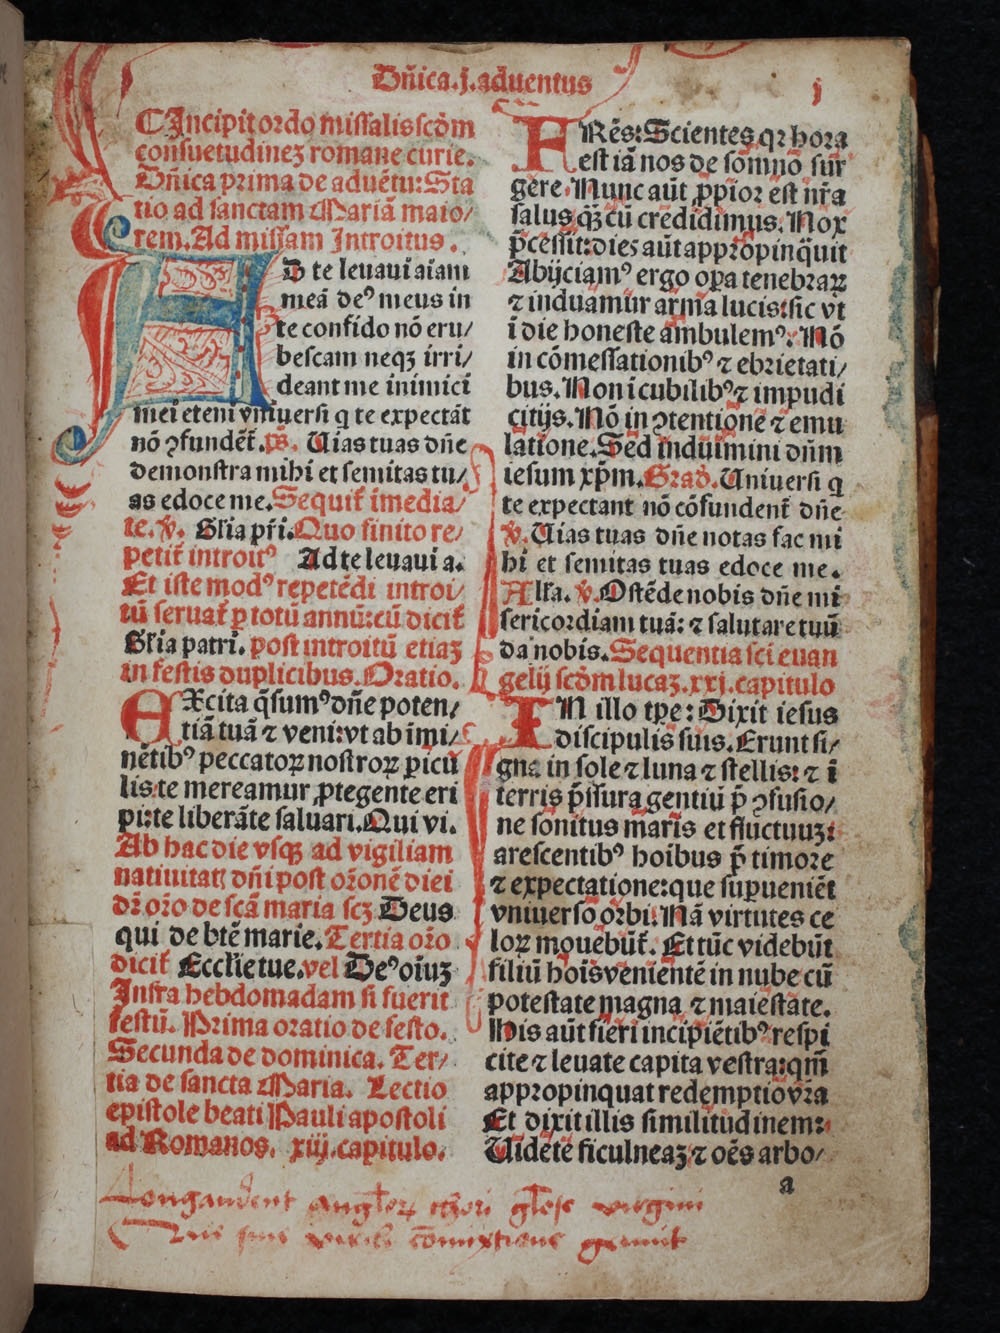 Dñica.j.aduentus
j
Incipit ordo missalis scďm
consuetudinẽ romane curie.
Dñica prima de aduẽtu: Sta
tio ad sanctam Mariã maio/
rem. Ad missam Introitus.
AD te leuaui aĩam
meã deꝰ meus in
te confido nõ eru/
bescam neqꝫ irri/
deant me inimici
mei eteni vniuersi q te expectãt
nõ ꝯfundẽt̃. ps. Uias tuas dñe
demonstra mihi et semitas tu/
as edoce me. Sequit̃ imedia/
te. v̓. Gl̃ia pr̃i. Quo finito re/
petit̃ introitꝰ Ad te leuaui a.
Et iste modꝰ repetẽdi introi/
tũ seruat̃ ꝑ totũ annũ: cũ dicit̃
Gl̃ia patri. post introitũ etiaꝫ
in festis duplicibus. Oratio.
EXcita q̃sumꝰ dñe poten/
tiã tuã ⁊ veni: vt ab imi/
nẽtibꝰ peccatoꝝ nostroꝝ ꝑicu
lis te mereamur ꝓtegente eri
pi: te liberãte saluari. Qui vi.
Ab hac die vsqꝫ ad vigiliam
natiuitatꝭ dñi post or̃onẽ diei
dr̃ or̃o de scã maria scꝫ Deus
qui de btẽ marie. Tertia or̃o
dicit̃ Eccl̃ie tue. vel Deꝰ oĩuꝫ
Infra hebdomadam si fuerit
festũ. Prima oratio de festo.
Secunda de dominica. Ter/
tia de sancta Maria. Lectio
epistole beati Pauli apostoli
ad Romanos. xiij. capitulo.
FRẽs: Scientes qꝛ hora
est iã nos de sõmno sur
gere. Nunc aũt ꝓpior est nr̃a
salus q̃ꝫ cũ credidimus. Nox
p̃cessit: dies aũt appropinq̃uit
Abijciamꝰ ergo oꝑa tenebraꝝ
⁊ induamur arma lucis: sic vt
ĩ die honeste ambulemꝰ: Nõ
in cõmessationibꝰ ⁊ ebrietati/
bus. Non ĩ cubilibꝰ ⁊ impudi
citijs. Nõ in ꝯtentione ⁊ emu
latione. Sed induimini dñm
iesum xp̃m. Grad̓. Uniuersi q
te expectant nõ cõfundent̃ dñe
v̓. Uias tuas dñe notas fac mi
hi et semitas tuas edoce me.
All̃a. v̓. Ostẽde nobis dñe mi
sericordiam tuã: ⁊ salutare tuũ
da nobis. Sequentia sci euan
gelij scďm lucaꝫ. xxj. capitulo
IN illo tꝑe: Dixit iesus
discipulis suis. Erunt si/
gna in sole ⁊ luna ⁊ stellis: ⁊ ĩ
terris p̃ssura gentiũ p̃ ꝯfusio/
ne sonitus maris et fluctuuꝫ:
arescentibꝰ hoibus p̃ timore
⁊ expectatione: que suꝑueniẽt
vniuerso orbi. Nã virtutes ce
loꝝ mouebũt̃. Et tũc videbũt
filiũ hoĩs venientẽ in nube cũ
potestate magna ⁊ maiestate.
His aũt fieri incipiẽtibꝰ respi
cite ⁊ leuate capita vestra: qm̃
appropinquat redemptio vr̃a
Et dixit illis similitudinem:
Uidete ficulneaꝫ ⁊ oẽs arbo/
a